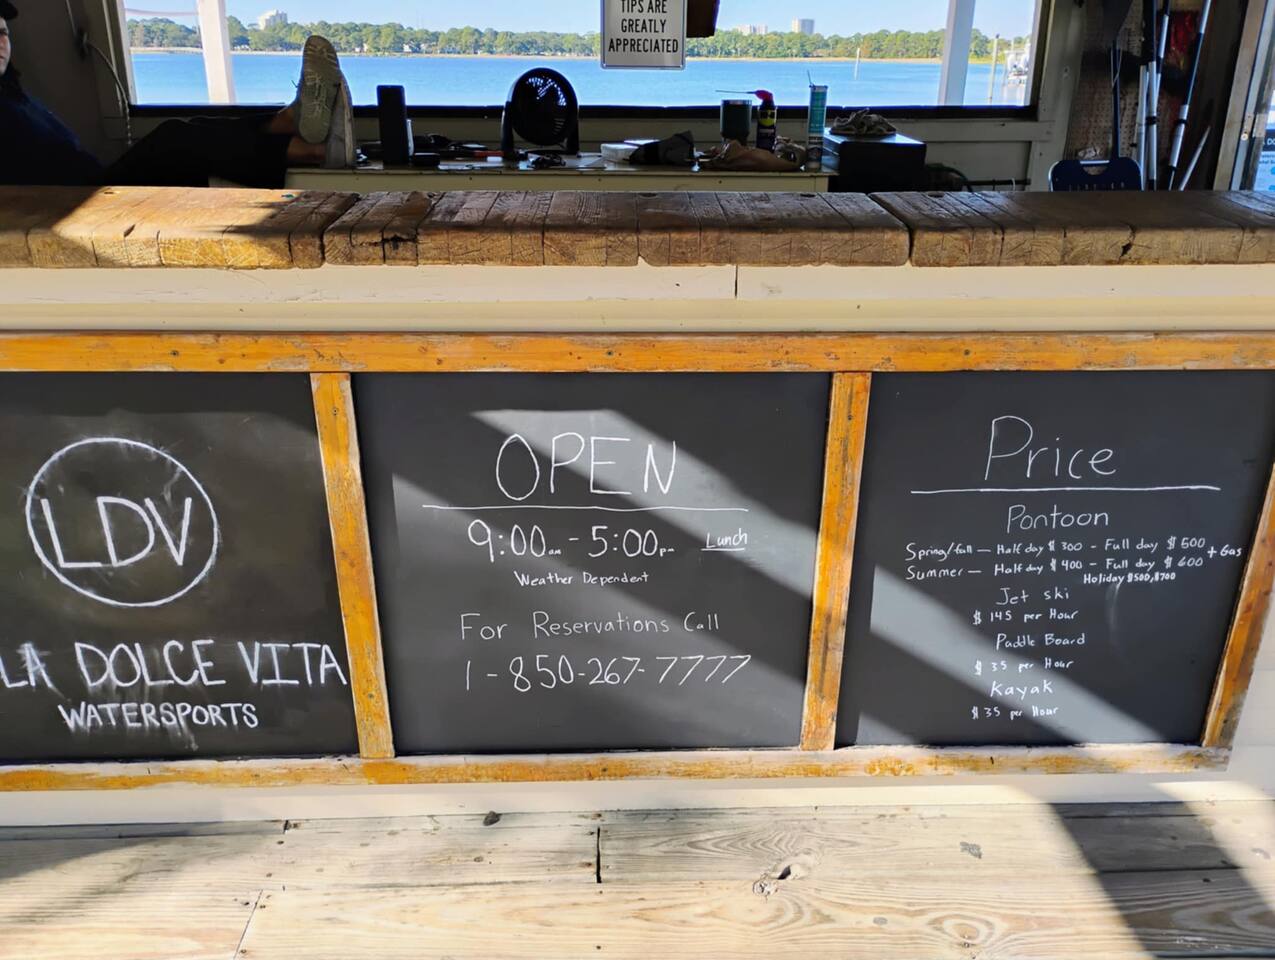 TIPS ARE
GREATLY
APPRECIATED
LDV
LA DOLCE VITA
WATERSPORTS
OPEN
9:00am - 5:00pm Lunch
Weather Dependent
For Reservations Call
1-850-267-7777
Price
Pontoon
Spring/fall — Half day $300 - Full day $500
Summer — Half day $400 - Full day $600 + Gas
Holiday $500, $700
Jet ski
$145 per Hour
Paddle Board
$35 per Hour
Kayak
$35 per Hour